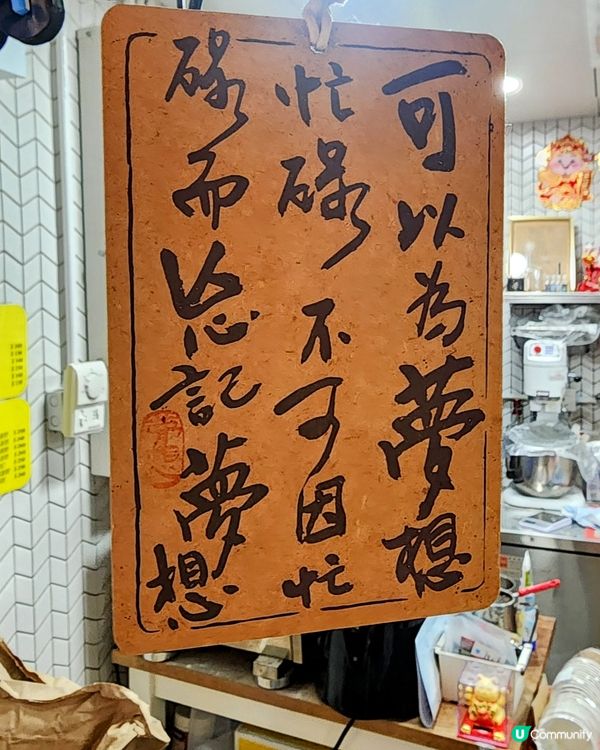 可以為夢想
忙碌不可因忙
碌而忘記夢想
U Community